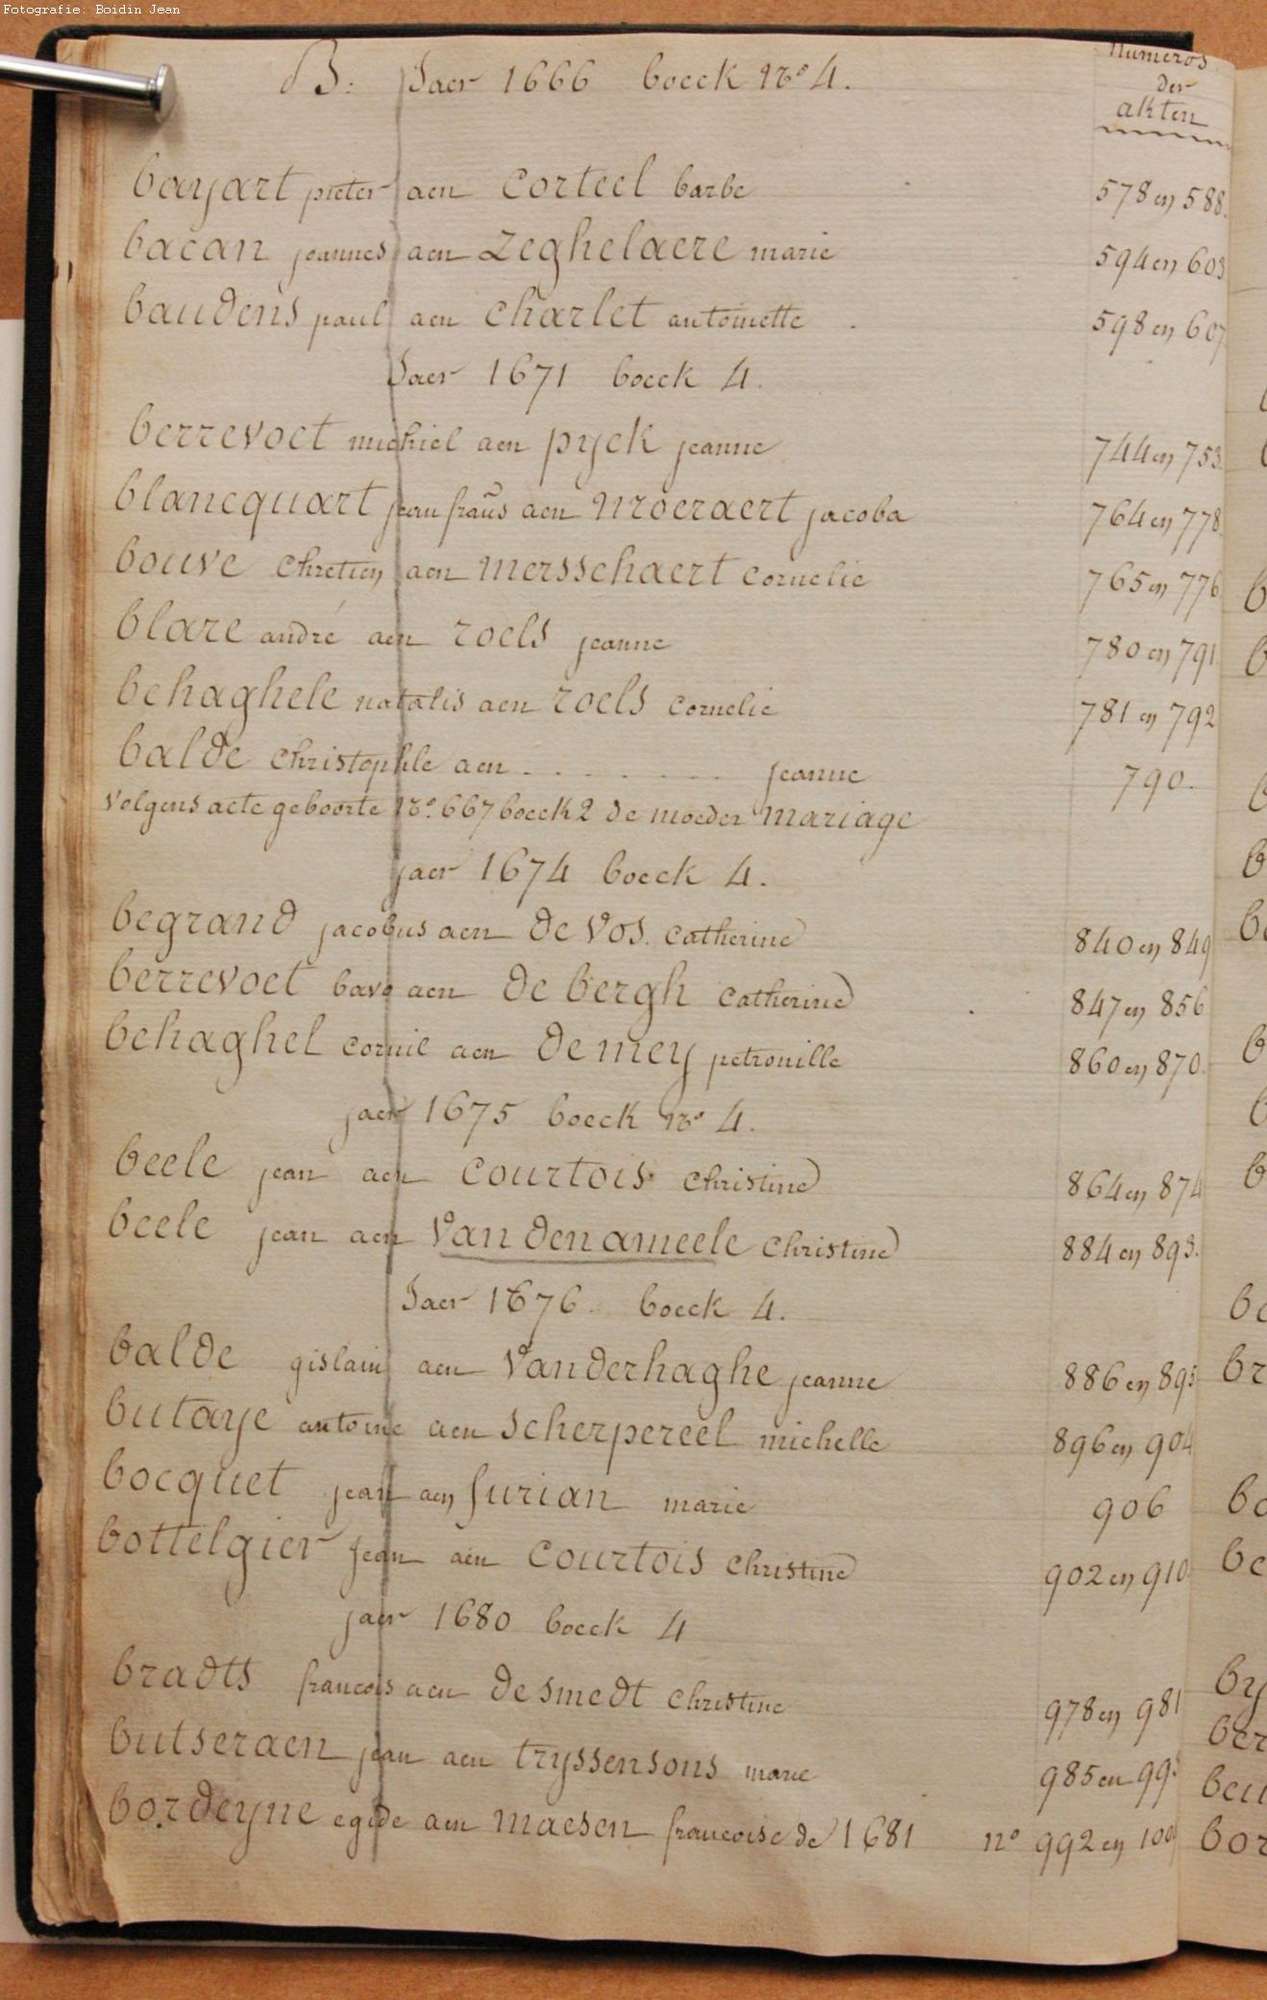 Fotografie: Boidin Jean
B: Jaer 1666 boeck No 4.
Numeros
der
akten
bayart pieter aen corteel barbe 578 en 588.
bacan joannes aen Zeghelaere marie 594 en 603
baudens paul aen charlet antoinette 598 en 607
Jaer 1671 boeck 4.
berrevoet michiel aen pyck jeanne 744 en 753.
blancquart jean frans aen Moeraert jacoba 764 en 778.
bouve chretien aen mersschaert cornelie 765 en 776
blare andré aen roels jeanne 780 en 791.
behaghele natalis aen roels cornelie 781 en 792
balde christophle aen . . . . . . . . jeanne 790.
volgens acte geboorte No. 667 boeck 2 de moeder mariage
jaer 1674 boeck 4.
begrand jacobus aen de Vos. catherine 840 en 849
berrevoet bavo aen de bergh catherine 847 en 856
behaghel cornil aen de mey petronille 860 en 870.
jaer 1675 boeck No 4.
beele jean aen courtois christine 864 en 874
beele jean aen Van den ameele christine 884 en 893.
Jaer 1676. boeck 4.
balde gislain aen Vanderhaghe jeanne 886 en 895
butaye antoine aen scherpereel michelle 896 en 904
bocquet jean aen furian marie 906
bottelgier jean aen courtois christine 902 en 910
jaer 1680 boeck 4
bradts francois aen de smedt christine 978 en 981
butseraen jean aen tryssensons marie 985 en
bordeyne egide aen maesen francoise de 1681 no 992 en